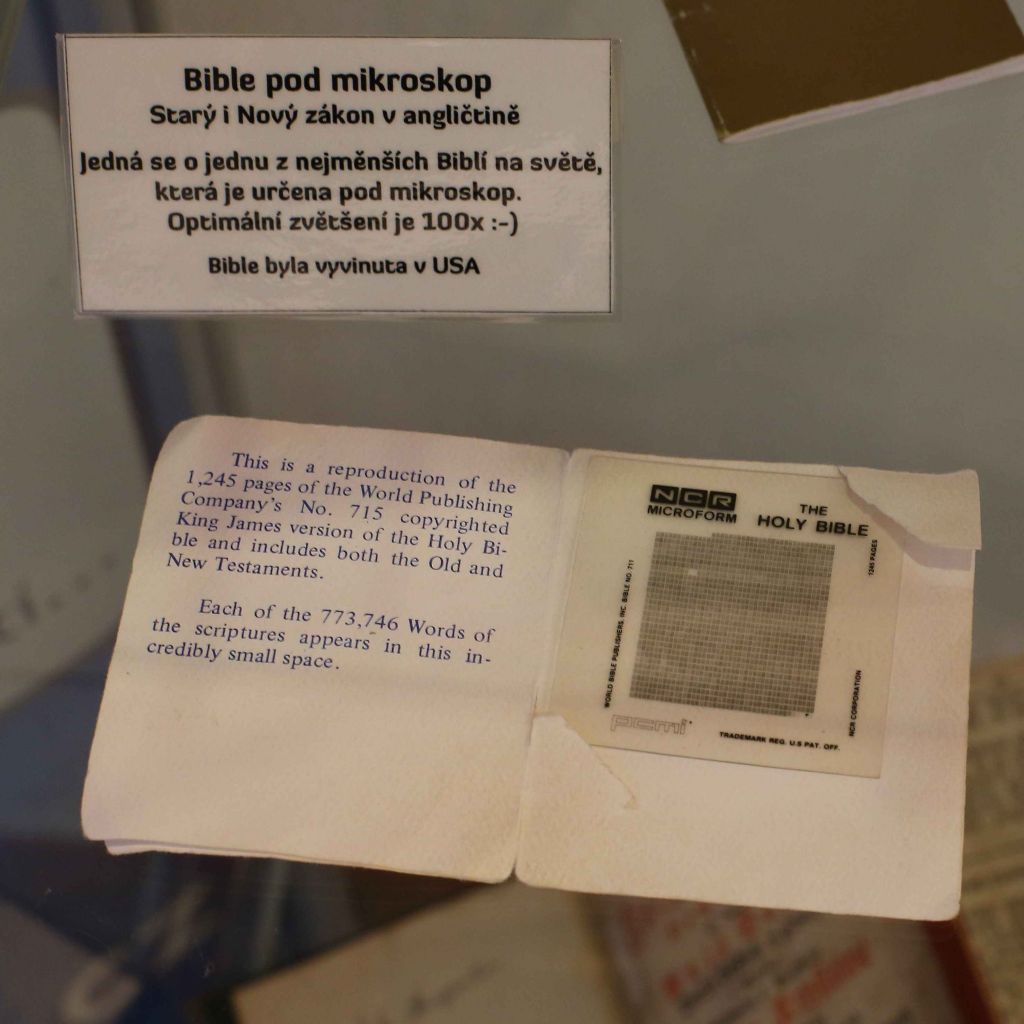 Bible pod mikroskop
Starý i Nový zákon v angličtině
Jedná se o jednu z nejměnších Biblí na světě,
která je určena pod mikroskop.
Optimální zvětšení je 100x :-)
Bible byla vyvinuta v USA
This is a reproduction of the
1,245 pages of the World Publishing
Company's No. 715 copyrighted
King James version of the Holy Bi-
ble and includes both the Old and
New Testaments.
Each of the 773,746 Words of
the scriptures appears in this in-
credibly small space.
NCR
MICROFORM
THE
HOLY BIBLE
1245 PAGES
WORLD BIBLE PUBLISHERS, INC. BIBLE NO. 711
NCR CORPORATION
pcmi
TRADEMARK REG. U.S PAT. OFF.